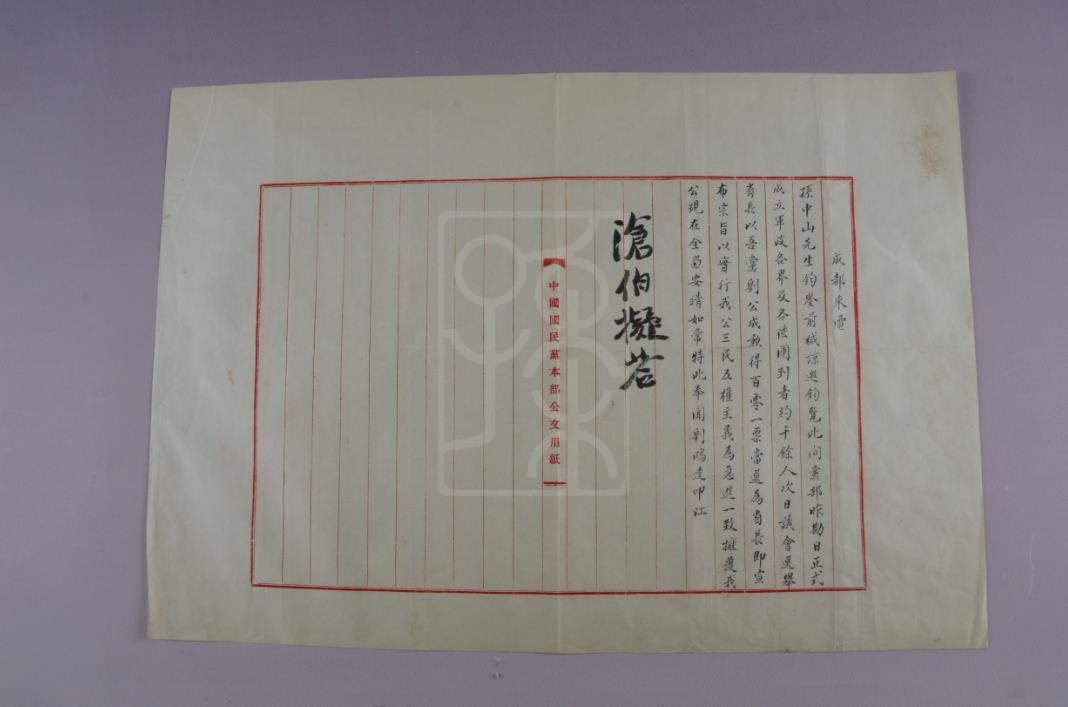 成都來電
孫中山先生鈞鑒前械諒邀鈞覽此間黨部昨勘日正式
成立軍政各界及各法團到者約千餘人次日議會選舉
省長以吾黨劉公成勳得百零一票當選為省長即宣
布宗旨以實行我公三民五權主義為急進一致擁護我
公現在全蜀安靖如常特此奉聞劉鴻逵叩江
滄伯擬答
中國國民黨本部公文用紙